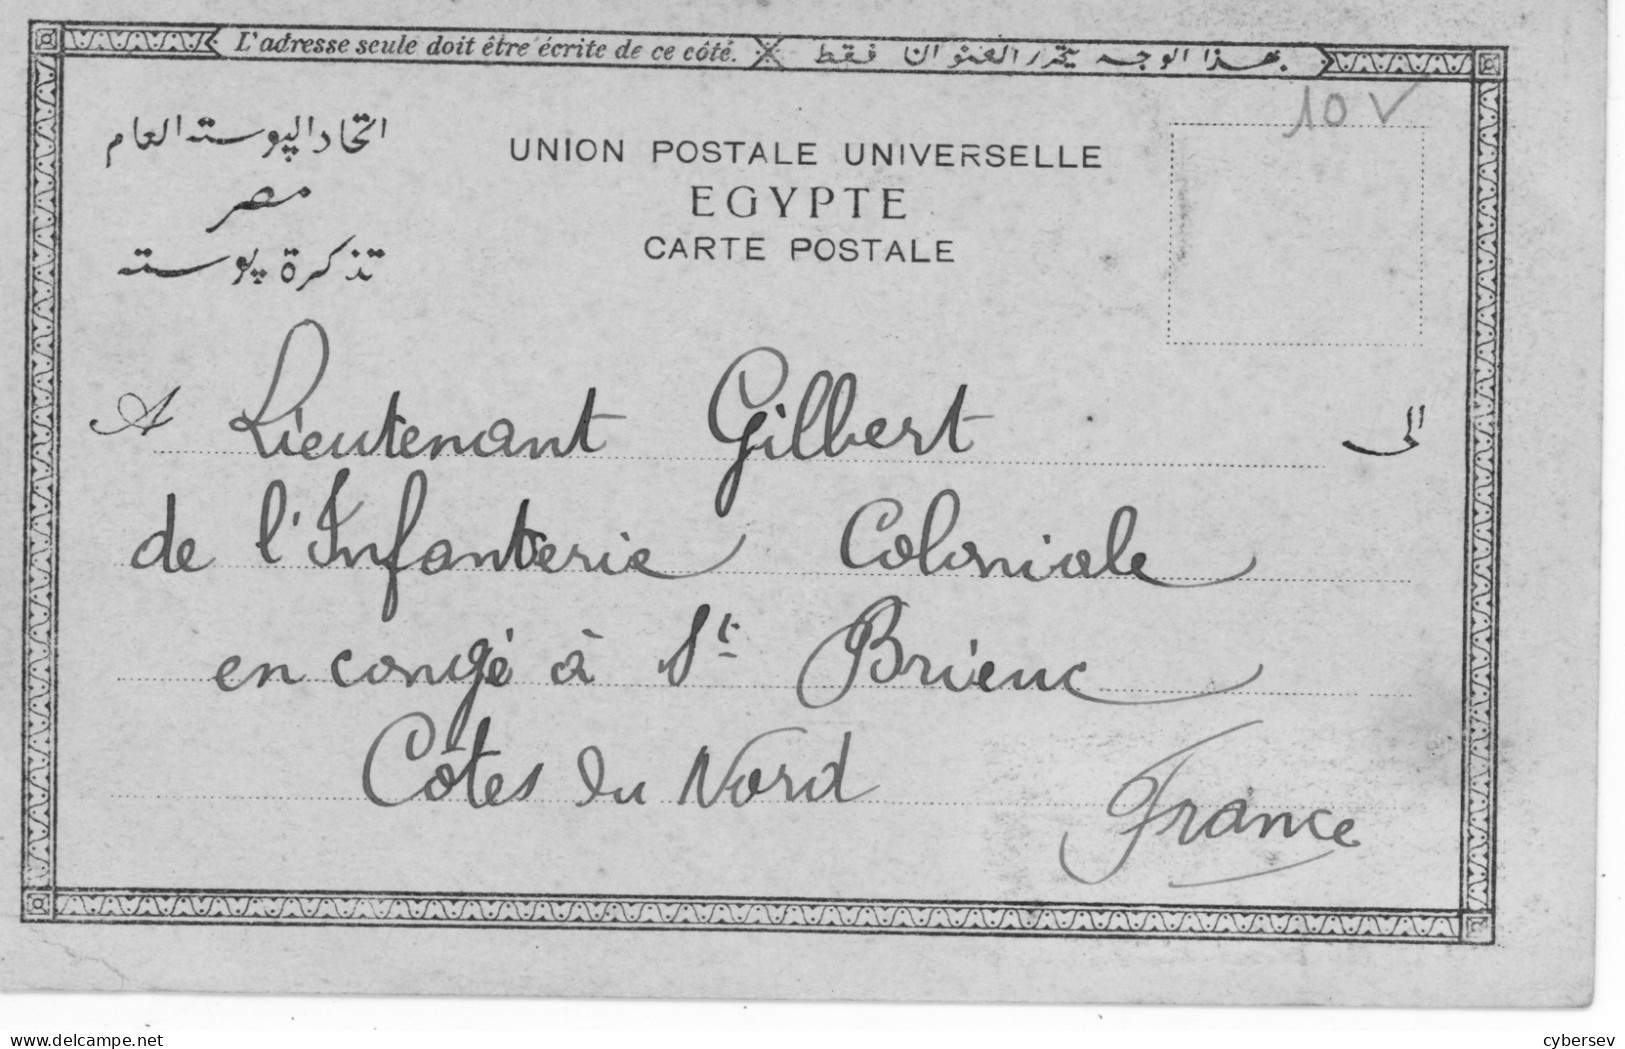 L'adresse seule doit être écrite de ce côté. بهذا الوجه يتحرر العنوان فقط
10 V
اتحاد البوسته العام
مصر
تذكرة بوسته
UNION POSTALE UNIVERSELLE
EGYPTE
CARTE POSTALE
A Lieutenant Gilbert الى
de l'Infanterie Coloniale
en congé à St Brieuc
Côtes du Nord
France
delcampe.net
cybersev